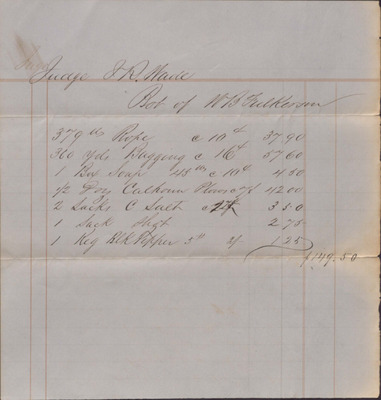 Judge I. R. Wade
Bot of W B Fulkerson
379 lbs Rope @ 10¢ 37.90
360 yds Bagging @ 16¢ 57.60
1 Box Soap 45 lbs @ 10¢ 4.50
1/2 Doz Calhoun Plows 42.00
2 Sacks C Salt 3.50
1 Sack Shot 2.75
1 Keg Blk Pepper 1.25
$149.50